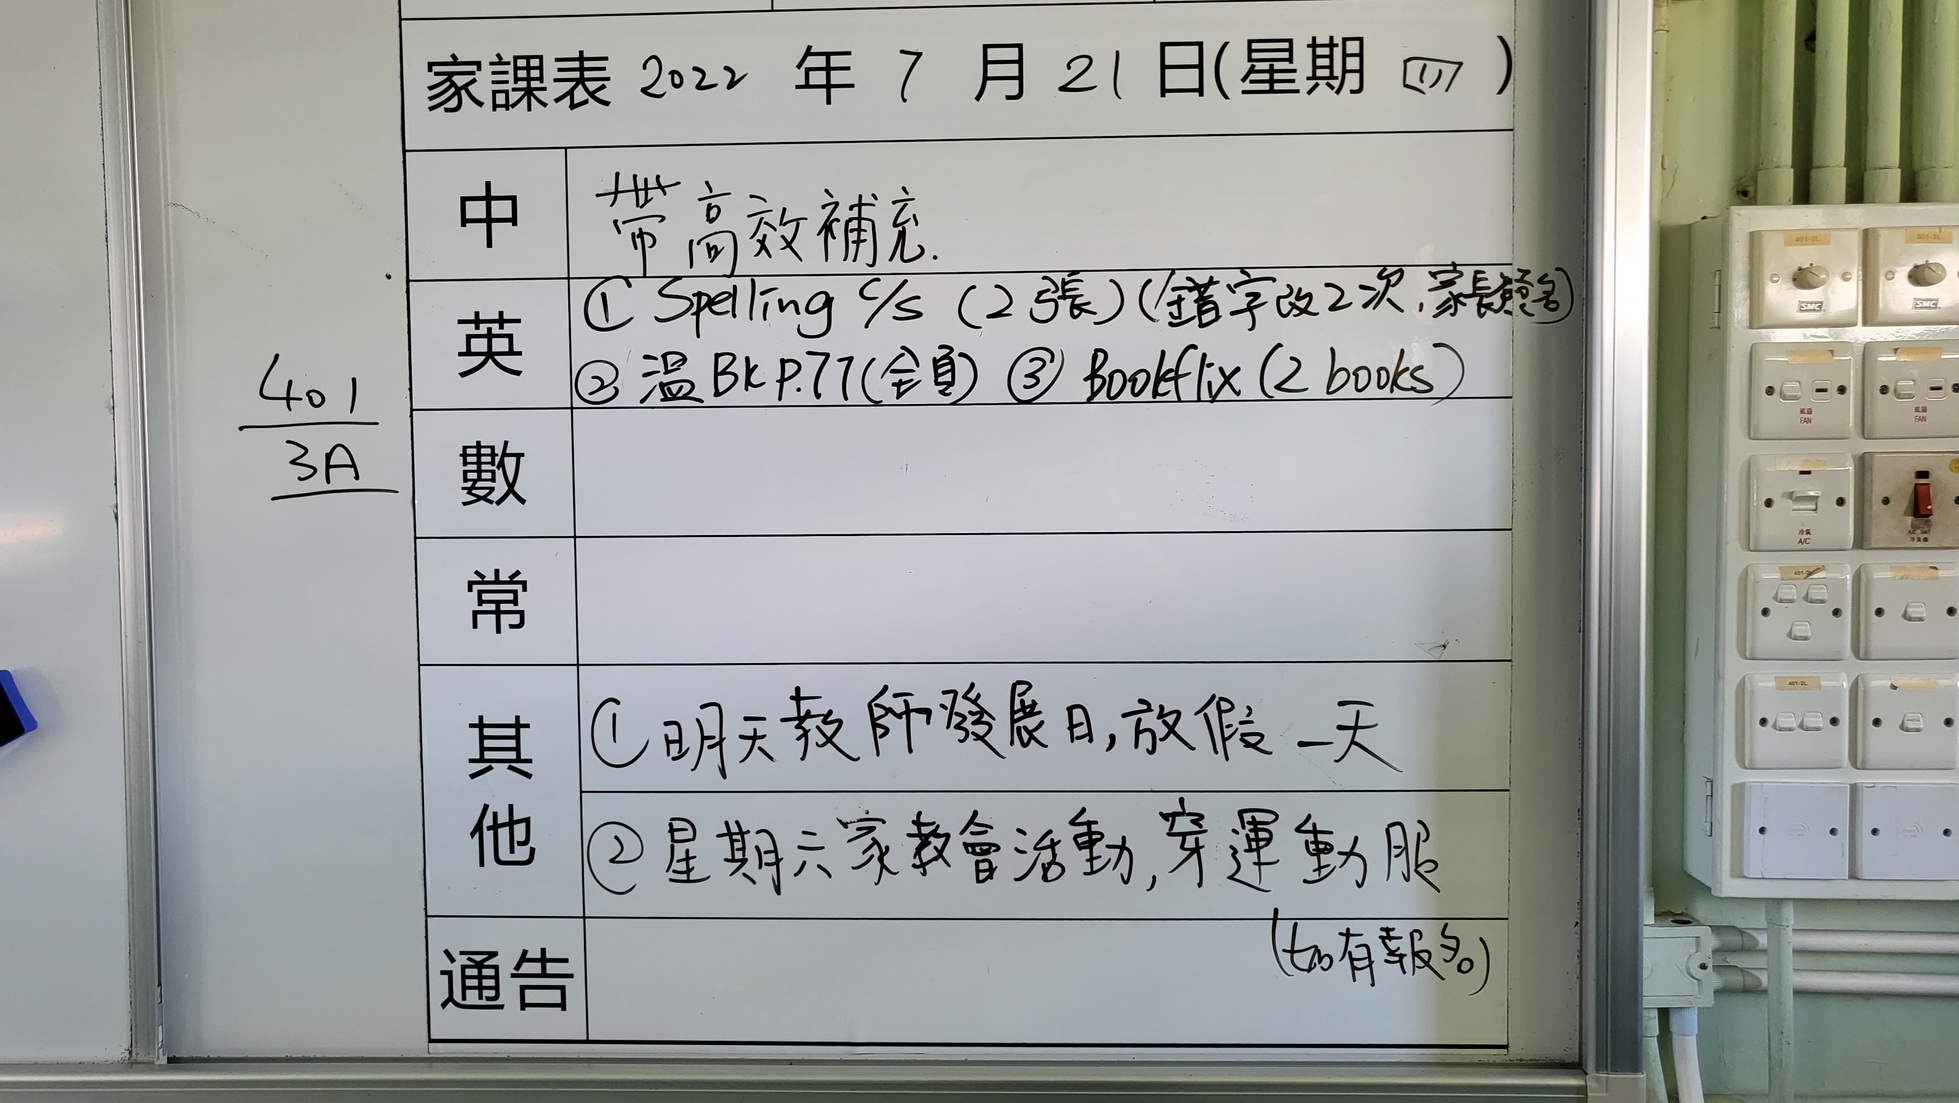 家課表 2022 年 7 月 21 日(星期 四 )
中 帶高效補充.
英 ① Spelling c/s (2張)(錯字改2次, 家長簽名)
② 溫 BK P.77(全頁) ③ Bookflix (2 books)
401
3A
數
常
其他 ① 明天教師發展日, 放假一天
② 星期六家教會活動, 穿運動服
(如有報名)
通告
SMC
SMC
風扇
FAN
風扇
FAN
冷氣
A/C